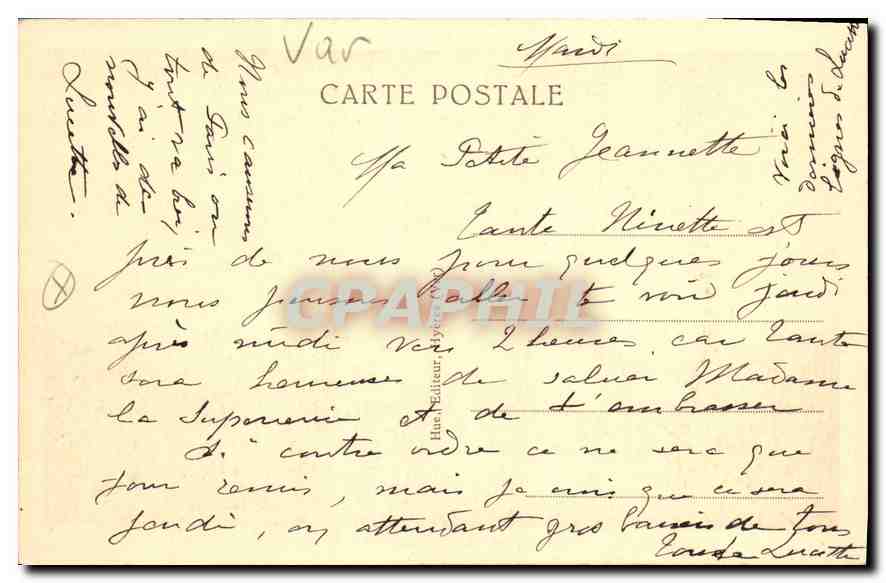 Var
Mardi
CARTE POSTALE
Ma Petite Jeannette
Tante Ninette est
près de nous pour quelques jours
nous pensons aller te voir jeudi
après midi vers 2 heures car tante
sera heureuse de saluer Madame
la Superieure et de t'embrasser
Si contre ordre ce ne sera que
jour remis, mais je crois que ce sera
jeudi, en attendant gros baisers de tous
Lucette
Nous causerons
de Paris ou
tout va bien,
j'ai de
nouvelles de
Lucette.
Voici les
dernières
lignes de Lucette
Huel Editeur, Hyères (Var)
GPAPHIL